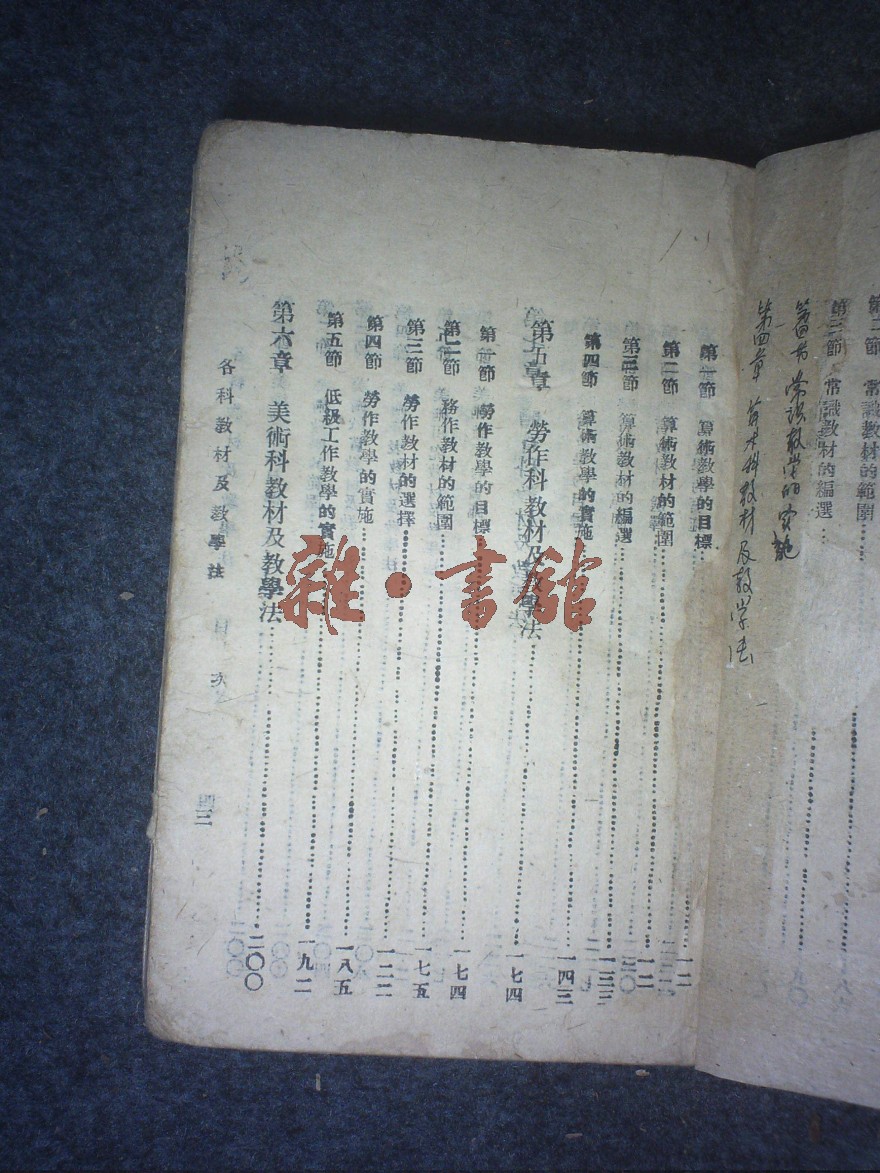 第二節 常識教材的範圍
第三節 常識教材的編選
第四節 常識教学的实施
第四章 算术科教材及教学法
第一節 算術教學的目標 一一二
第二節 算術教材的範圍
第三節 算術教材的編選
第四節 算術教學的實施
第五章 勞作科教材及教學法 一七四
第一節 勞作教學的目標 一七四
第二節 務作教材的範圍
第三節 勞作教材的選擇 一七五
第四節 勞作教學的實施
第五節 低級工作教學的實施 一九二
第六章 美術科教材及教學法 二〇〇
各科教材及教學法 目次
雜·書館